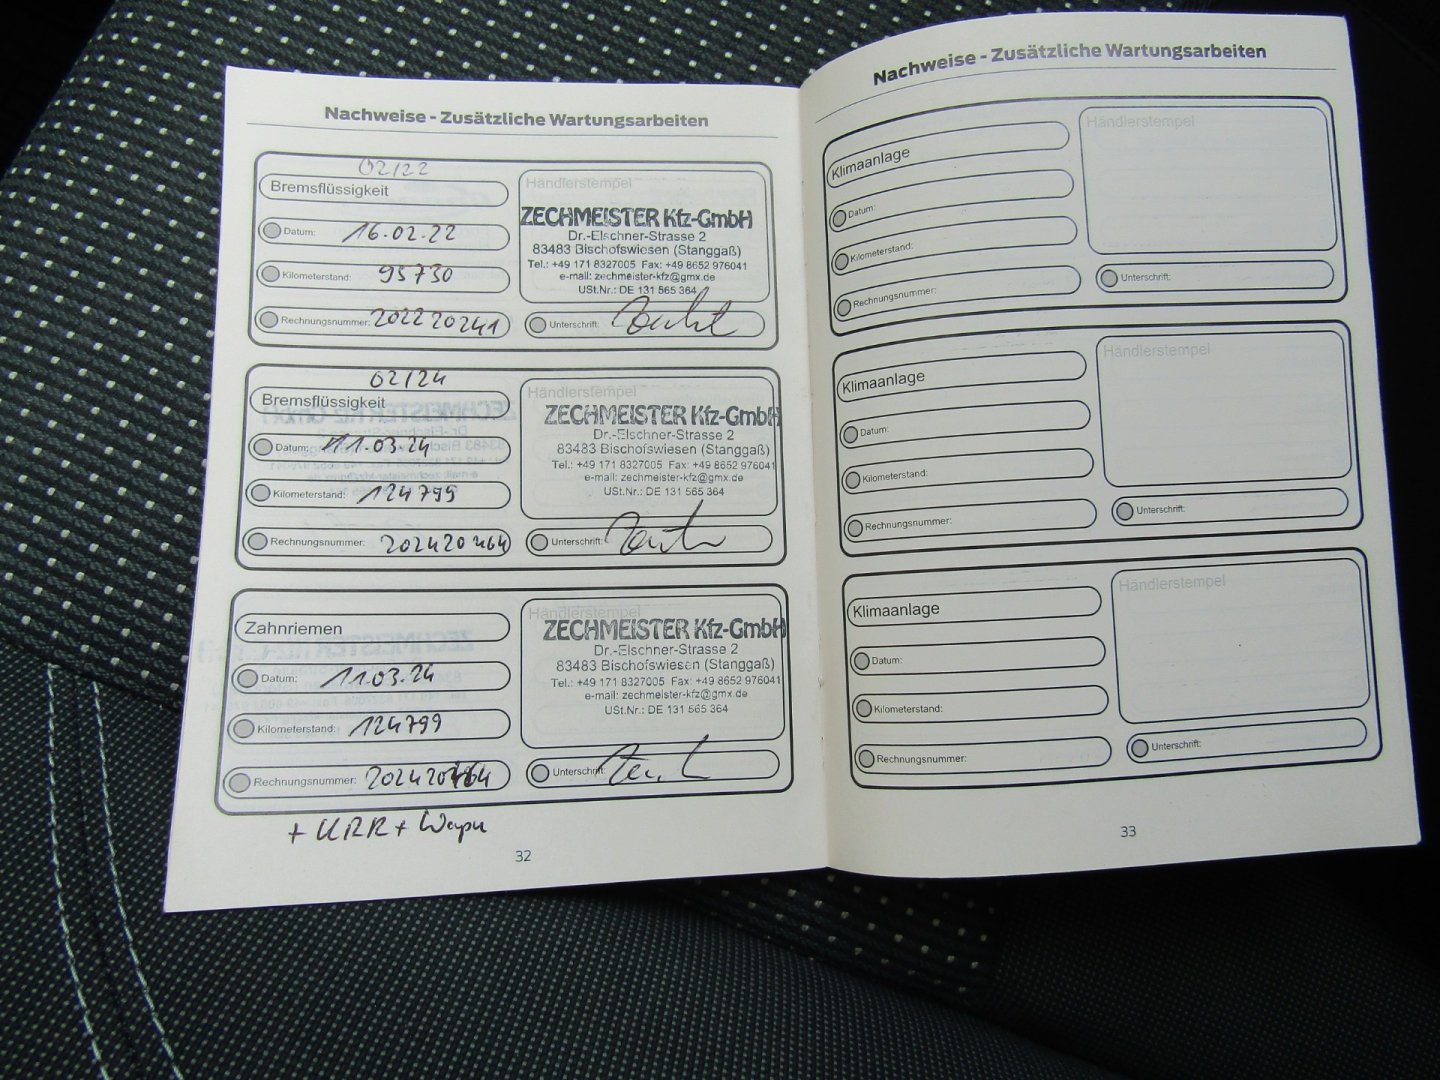 Nachweise - Zusätzliche Wartungsarbeiten
02/22
Bremsflüssigkeit
Datum: 16.02.22
Kilometerstand: 95730
Rechnungsnummer: 202220241
Händlerstempel
ZECHMEISTER Kfz-GmbH
Dr.-Elschner-Strasse 2
83483 Bischofswiesen (Stanggaß)
Tel.: +49 171 8327005 Fax: +49 8652 976041
e-mail: zechmeister-kfz@gmx.de
USt.Nr.: DE 131 565 364
Unterschrift:
02/24
Bremsflüssigkeit
Datum: 11.03.24
Kilometerstand: 124799
Rechnungsnummer: 202420464
Händlerstempel
ZECHMEISTER Kfz-GmbH
Dr.-Elschner-Strasse 2
83483 Bischofswiesen (Stanggaß)
Tel.: +49 171 8327005 Fax: +49 8652 976041
e-mail: zechmeister-kfz@gmx.de
USt.Nr.: DE 131 565 364
Unterschrift:
Zahnriemen
Datum: 11.03.24
Kilometerstand: 124799
Rechnungsnummer: 202420464
Händlerstempel
ZECHMEISTER Kfz-GmbH
Dr.-Elschner-Strasse 2
83483 Bischofswiesen (Stanggaß)
Tel.: +49 171 8327005 Fax: +49 8652 976041
e-mail: zechmeister-kfz@gmx.de
USt.Nr.: DE 131 565 364
Unterschrift:
+ KRR + Wapu
32
Nachweise - Zusätzliche Wartungsarbeiten
Klimaanlage
Datum:
Kilometerstand:
Rechnungsnummer:
Händlerstempel
Unterschrift:
Klimaanlage
Datum:
Kilometerstand:
Rechnungsnummer:
Händlerstempel
Unterschrift:
Klimaanlage
Datum:
Kilometerstand:
Rechnungsnummer:
Händlerstempel
Unterschrift:
33